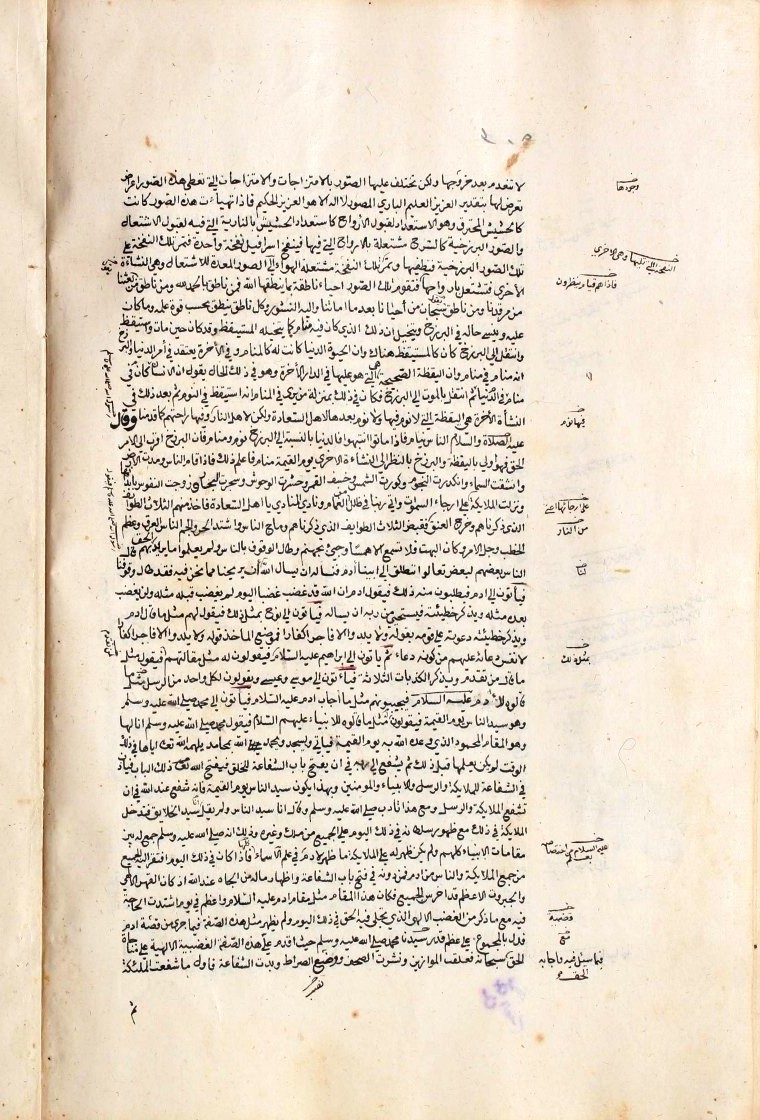 لا تنعدم بعد خروجها ولكن تختلف عليها الصور بالامتزاجات والامتزاجات التي تعطي هذه الصور اعراض
تعرض لها بتقدير العزيز العليم الباري المصور لا اله الا هو العزيز الحكيم فاذا تهيأت هذه الصور كانت
كالحشيش المحترق وهو الاستعداد لقبول الأرواح كاستعداد الحشيش بالنارية التي فيه لقبول الاشتعال
والصور البرزخية كالسرج مشتعلة بالارواح التي فيها فينفخ اسرافيل نفخة واحدة فتمر تلك النفخة على
تلك الصور البرزخية فتطفيها وتمر تلك النفخة مشتعلة الهواء الى الصور المعدة للاشتعال وهي النشأة
الأخرى فتشتعل بارواحها فتقوم تلك الصور احياء ناطقة بما ينطقها الله فمن ناطق بالحمد لله ومن ناطق من بعثنا
من مرقدنا ومن ناطق سبحان من أحيانا بعد ما اماتنا واليه النشور وكل ناطق ينطق بحسب قوة علمه وما كان
عليه وينسى حاله في البرزخ ويتخيل ان ذلك الذي كان فيه منام كما يتخيله المستيقظ وقد كان حين مات
وانتقل الى البرزخ كان كالمستيقظ هناك وان الحيوة الدنيا كانت له كالمنام وفي الأخرة يعتقد في أمر الدنيا والبرزخ
انه منام في منام وان اليقظة الصحيحة هي التي هو عليها في الدار الأخرة وهو في ذلك الحال يقول ان الانسان كان في
منام في الدنيا ثم انتقل بالموت الى البرزخ فكان في ذلك بمنزلة من يرى في المنام انه استيقظ في النوم ثم بعد ذلك في
النشأة الأخرة هي اليقظة التي لا نوم فيها ولا نوم بعدها لاهل السعادة ولكن لاهل النار وفيها راحتهم كما قدمنا وقال
عليه الصلاة والسلام الناس نيام فاذا ماتوا انتبهوا فالدنيا بالنسبة الى البرزخ نوم ومنام فان البرزخ اقرب الى الامر
الحق فهو اولى باليقظة والبرزخ بالنظر الى النشاءة الاخرى يوم القيمة منام فاعلم ذلك فاذا قام الناس ومدت الارض
وانشقت السماء وانكدرت النجوم وكورت الشمس وخسف القمر وحشرت الوحوش وسجرت البحار وزوجت النفوس بابدانها
ونزلت الملايكة على ارجاء السموات واتى ربنا في ظلل الغمام ونادى المنادي يا اهل السعادة فاخذ منهم الثلاث الطوايف
الذي ذكرناهم وخرج العنق فقبض الثلاث الطوايف الذي ذكرناهم وماج الناس واشتد الحر والجم الناس العرق وعظم
الخطب وجل الامر وكان البهت فلا تسمع الا همسا وجيء بجهنم وطال الوقوف بالناس ولم يعلموا ما يريد بهم الحق
الناس بعضهم لبعض تعالوا ننطلق الى ابينا أدم فنساله ان يسال الله أن يريحنا مما نحن فيه فقد طال وقوفنا
فيأتون الى ادم فيطلبون منه ذلك فيقول ادم ان الله قد غضب غضبا اليوم لم يغضب قبله مثله ولن يغضب
بعده مثله ويذكر خطيئته فيستحيي من ربه ان يساله فيأتون الى نوح بمثل ذلك فيقول لهم مثل ما قال ادم
ويذكر خطيئته دعوته على قومه بقوله ولا يلدوا الا فاجرا كفارا فموضع المأخذ قوله ولا يلدوا الا فاجرا كفارا
لا نفس دعائه عليهم من كونه دعاء ثم يأتون الى ابراهيم عليه السلام فيقولون له مثل مقالتهم فيقول مثل
ما قال من تقدم ويذكر الكذبات الثلاثة فيأتون الى موسى وعيسى ويقولون لكل واحد من الرسل مثل
قالوه لأدم عليه السلام فيجيبونهم مثل ما أجاب ادم عليه السلام فيأتون الى محمد صلى الله عليه وسلم
وهو سيد الناس يوم القيمة فيقولون مثل ما قالوه للانبياء عليهم السلام فيقول محمد صلى الله عليه وسلم انا لها
وهو المقام المحمود الذي وعده الله به يوم القيمة فيأتي ويسجد ويحمد الله بمحامد يلهمه الله تعالى اياها في ذلك
الوقت لم يكن يعلمها قبل ذلك ثم يشفع الى ربه في ان يفتح باب الشفاعة للخلق فيفتح الله تعالى ذلك الباب فيأذن
في الشفاعة للملايكة والرسل والانبياء والمومنين وبهذا يكون سيد الناس يوم القيمة فانه شفع عند الله في ان
تشفع الملايكة والرسل ومع هذا تأدب صلى الله عليه وسلم وقال انا سيد الناس ولم يقل سيد الخلايق فتدخل
الملايكة في ذلك مع ظهور سلطانه في ذلك اليوم على الجميع من ملك وغيره وذلك انه صلى الله عليه وسلم جمع له بين
مقامات الانبياء كلهم ولم يكن ظهر له على الملايكة ما ظهر لادم في علم الأسماء فاذا كان في ذلك اليوم افتقر اليه الجميع
من جميع الملايكة والناس من ادم فمن دونه في فتح باب الشفاعة واظهار ماله من الجاه عند الله اذ كان القهر الالهي
والجبروت الاعظم قد اخرس الجميع فكان هذا المقام مثل مقام ادم عليه السلام واعظم في يوم اشتدت الحاجة
فيه مع ما ذكر من الغضب الالهي الذي تجلى فيه الحق في ذلك اليوم ولم يظهر مثل هذه الصفة فيما جرى من قصة ادم
فدل بالمجموع على عظم قدر سيدنا محمد صلى الله عليه وسلم حيث اقدم على هذه الصفة الغضبية الالهية على مناجاة
الحق سبحانه فعلقت الموازين ونشرت الصحف ووضع الصراط وبدت الشفاعة فاول ما شفعت الملئكة
وجودها
النفخة التي تليها وهي الاخرى
فاذا هم قيام ينظرون
فيها نوم
على ارجائها
من النار
لنا
بمثل ذلك
قصة
فيما سيل فيه فاجابه
الحق